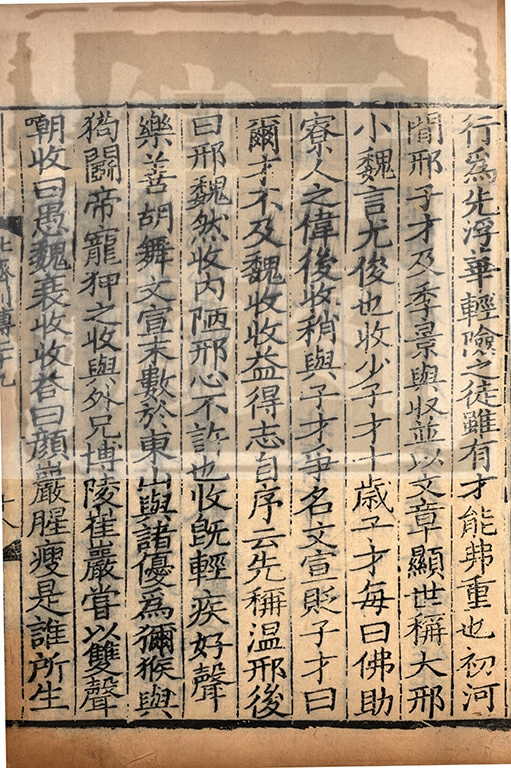 行爲先浮華輕險之徒雖有才能弗重也初河
間邢子才及季景與收並以文章顯世稱大邢
小魏言尤俊也收少子才十歲子才每曰佛助
寮人之偉後收稍與子才爭名文宣貶子才曰
爾才不及魏收收益得志自序云先稱温邢後
曰邢魏然收内陋邢心不許也收旣輕疾好聲
樂善胡舞文宣末數於東山與諸優爲獼猴與
狗鬭帝寵狎之收與外兄博陵崔巖嘗以雙聲
嘲收曰愚魏衰收收荅曰顔巖腥瘦是誰所生